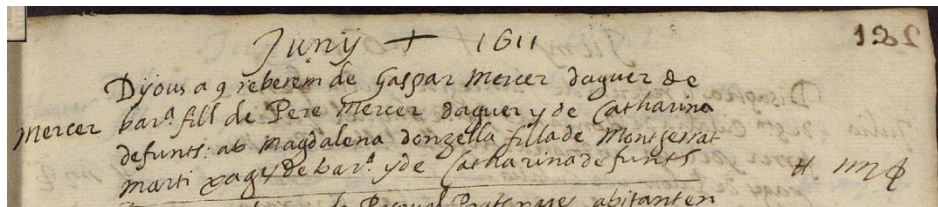 Juny + 1611
182
Dijous a 9 reberem de Gaspar Mercer daguer de
Mercer bar.ª fill de Pere Mercer daguer y de Catharina
defunts: ab Magdalena donzella filla de Montserrat
marti pages de bar.ª y de Catharina defunts
abitant en